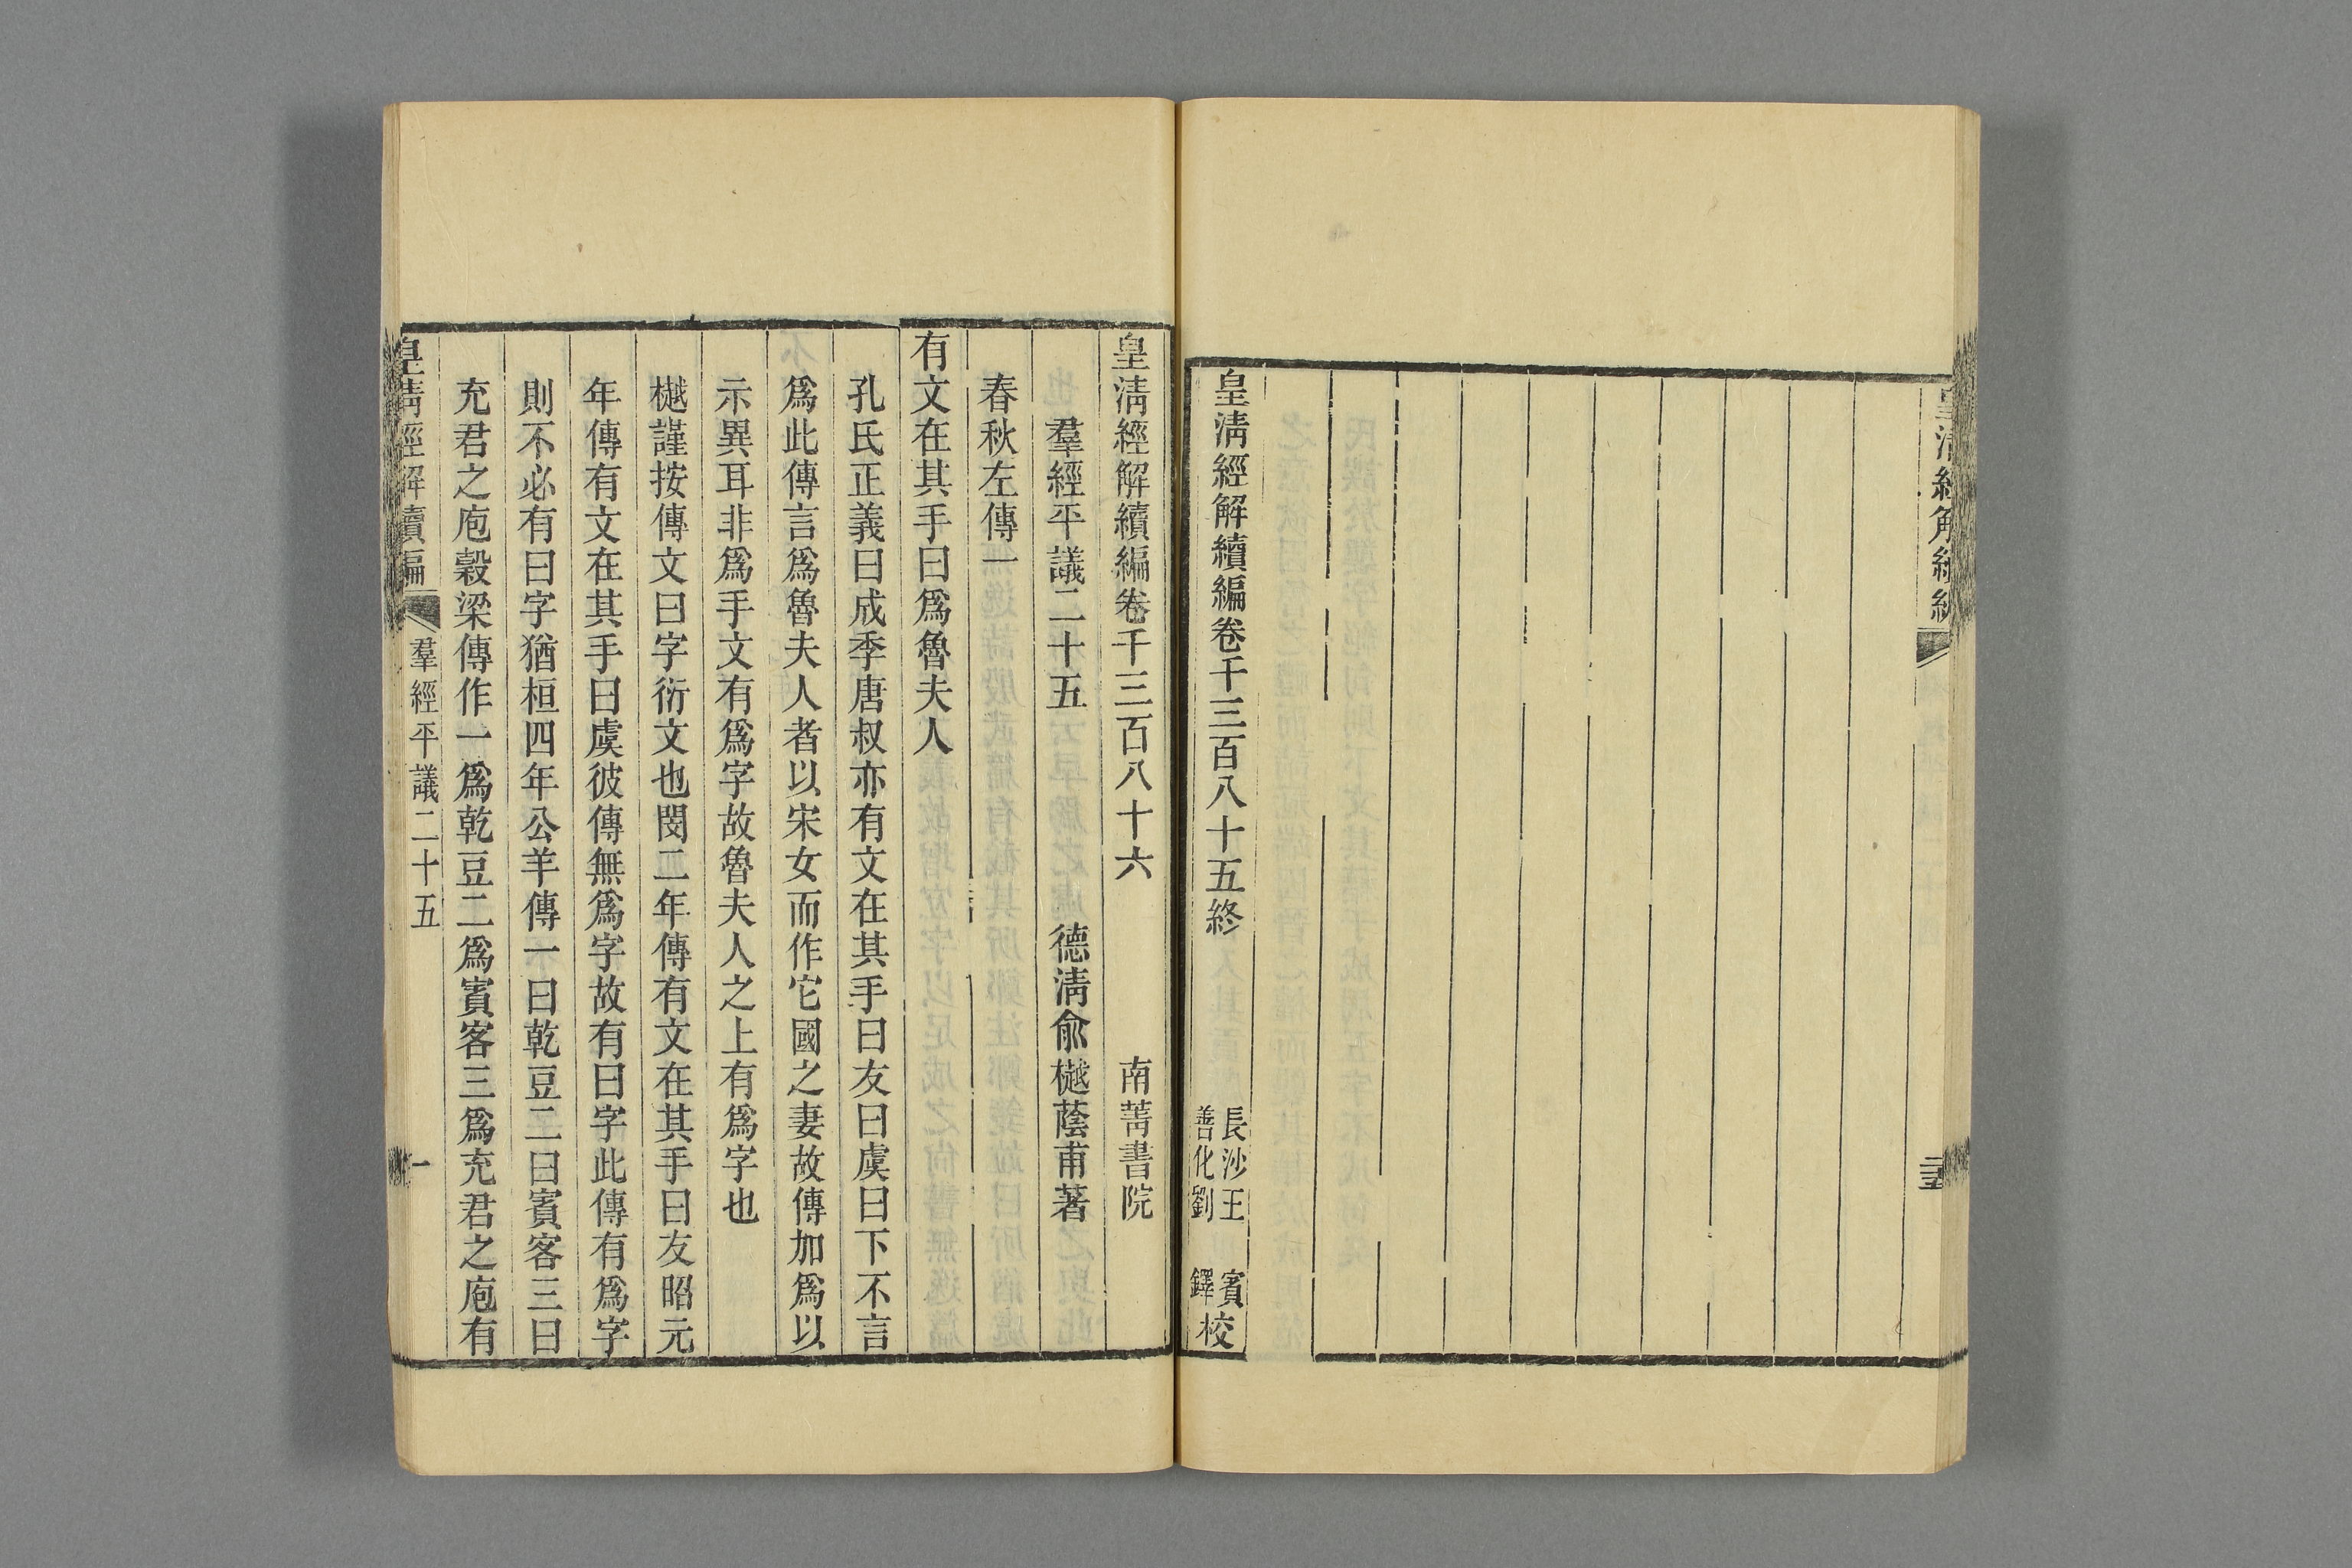 皇清經解續編
三五
皇清經解續編卷千三百八十五終
長沙王 賓
善化劉 鐸
校
皇清經解續編卷千三百八十六 南菁書院
羣經平議二十五 德清俞樾蔭甫著
春秋左傳一
有文在其手曰爲魯夫人
孔氏正義曰成季唐叔亦有文在其手曰友曰虞曰下不言
爲此傳言爲魯夫人者以宋女而作它國之妻故傳加爲以
示異耳非爲手文有爲字故魯夫人之上有爲字也
樾謹按傳文曰字衍文也閔二年傳有文在其手曰友昭元
年傳有文在其手曰虞彼傳無爲字故有曰字此傳有爲字
則不必有曰字猶桓四年公羊傳一曰乾豆二曰賓客三曰
充君之庖穀梁傳作一爲乾豆二爲賓客三爲充君之庖有
皇清經解續編 羣經平議二十五 一